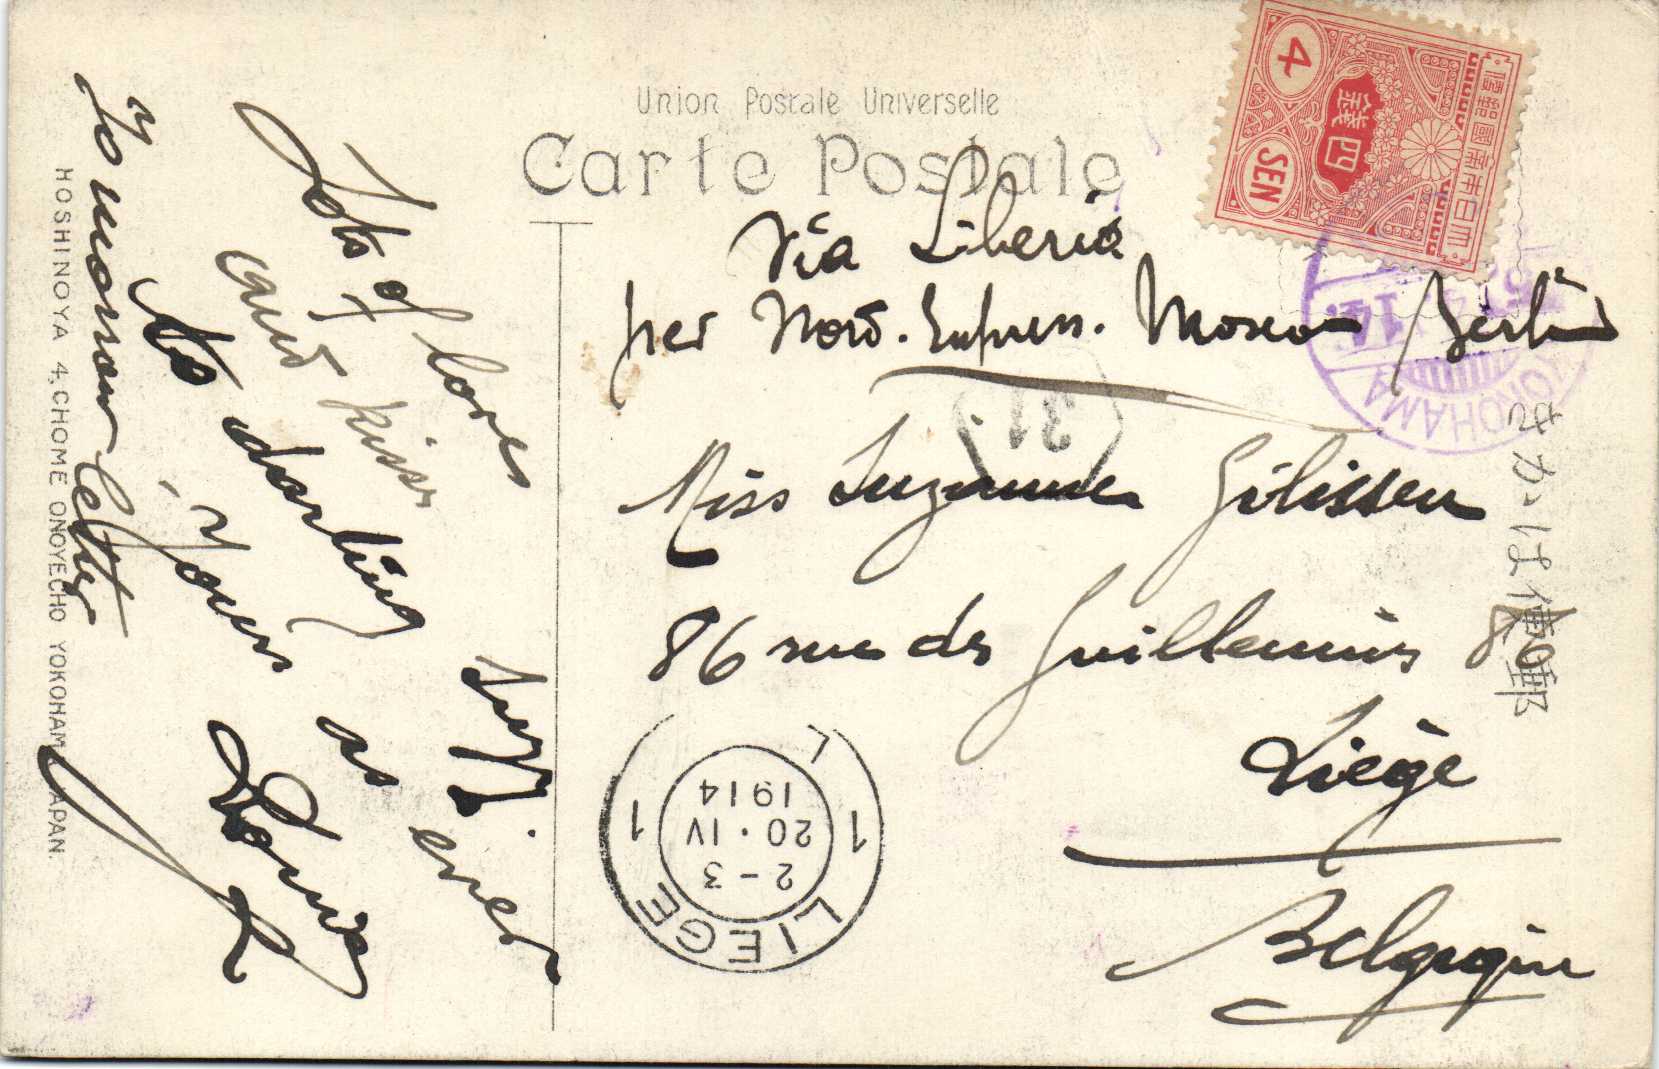 Union Postale Universelle
Carte Postale
4
SEN
四銭
大日本帝国郵便
Via Siberia
per Nord. Express. Moscou Berlin
YOKOHAMA
31
Miss Suzanne Gilissen
86 rue des Guillemins 86
Liège
Belgique
きかは便郵
LIEGE
1 1
2-3
20·IV
1914
L
Lots of love
and kisses
to darling
Suzy.
Yours as ever
To morrow letter
HOSHINOYA 4, CHOME ONOYECHO YOKOHAMA JAPAN.